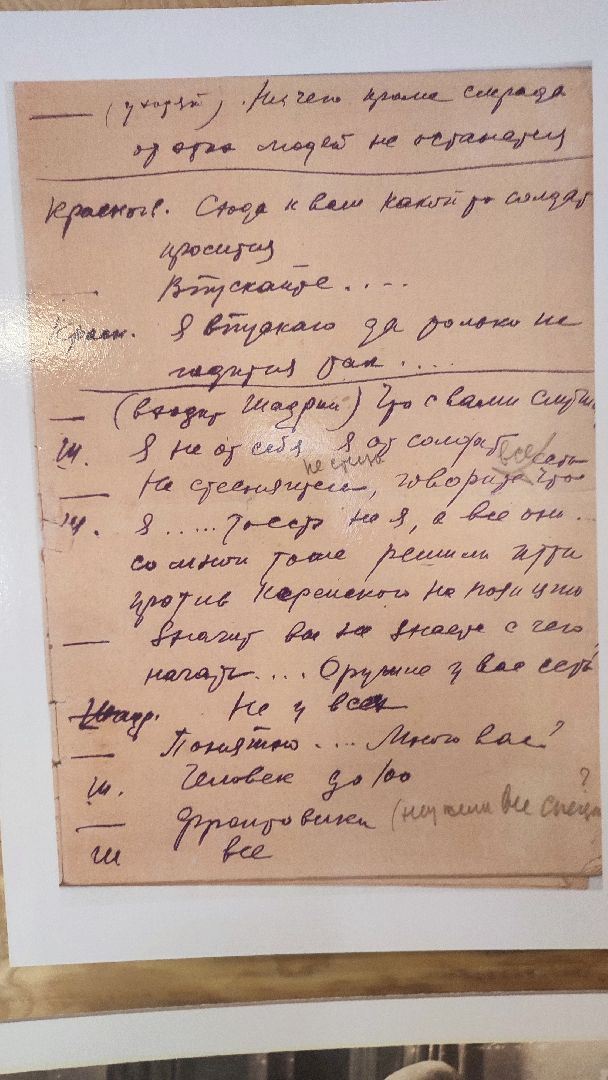 — (уходя). Ничего кроме смрада
от этих людей не останется
Красног. Сюда к вам какой то солдат
просится
— Впускайте....
Красн. Я впускаю да только не
годится так....
— (входит Шадрин) Что с вами
Ш. Я не от себя Я от солдат
— Не стесняйтесь, говорите что
Ш. Я..... тоесть не я, а все они..
со мной тоже решили итти
против Керенского на позицию
— Значит вы не знаете с чего
начать.... Оружие у вас есть
Шадр. Не у всех
— Понятно.... Много вас?
Ш. Человек до 100
— Фронтовики (неужели вы ?
Ш все